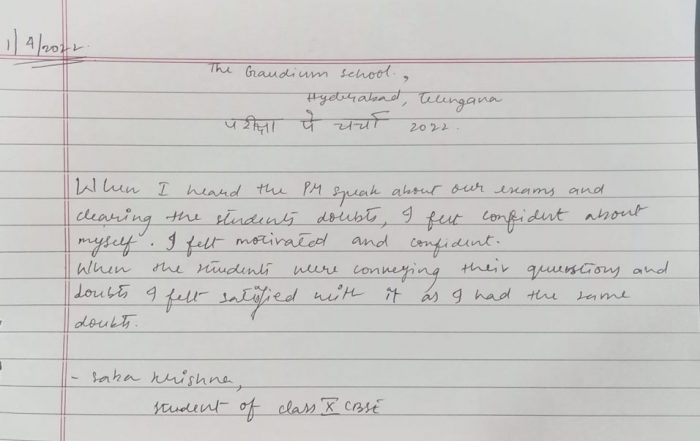 1/4/2022.
The Gaudium School.,
Hyderabad, Telengana
परीक्षा पे चर्चा 2022.
When I heard the PM speak about our exams and
clearing the students doubts, I felt confident about
myself. I felt motivated and confident.
When the students were conveying their questions and
doubts I felt satisfied with it as I had the same
doubts.
- Saha Krishna,
Student of class X CBSE